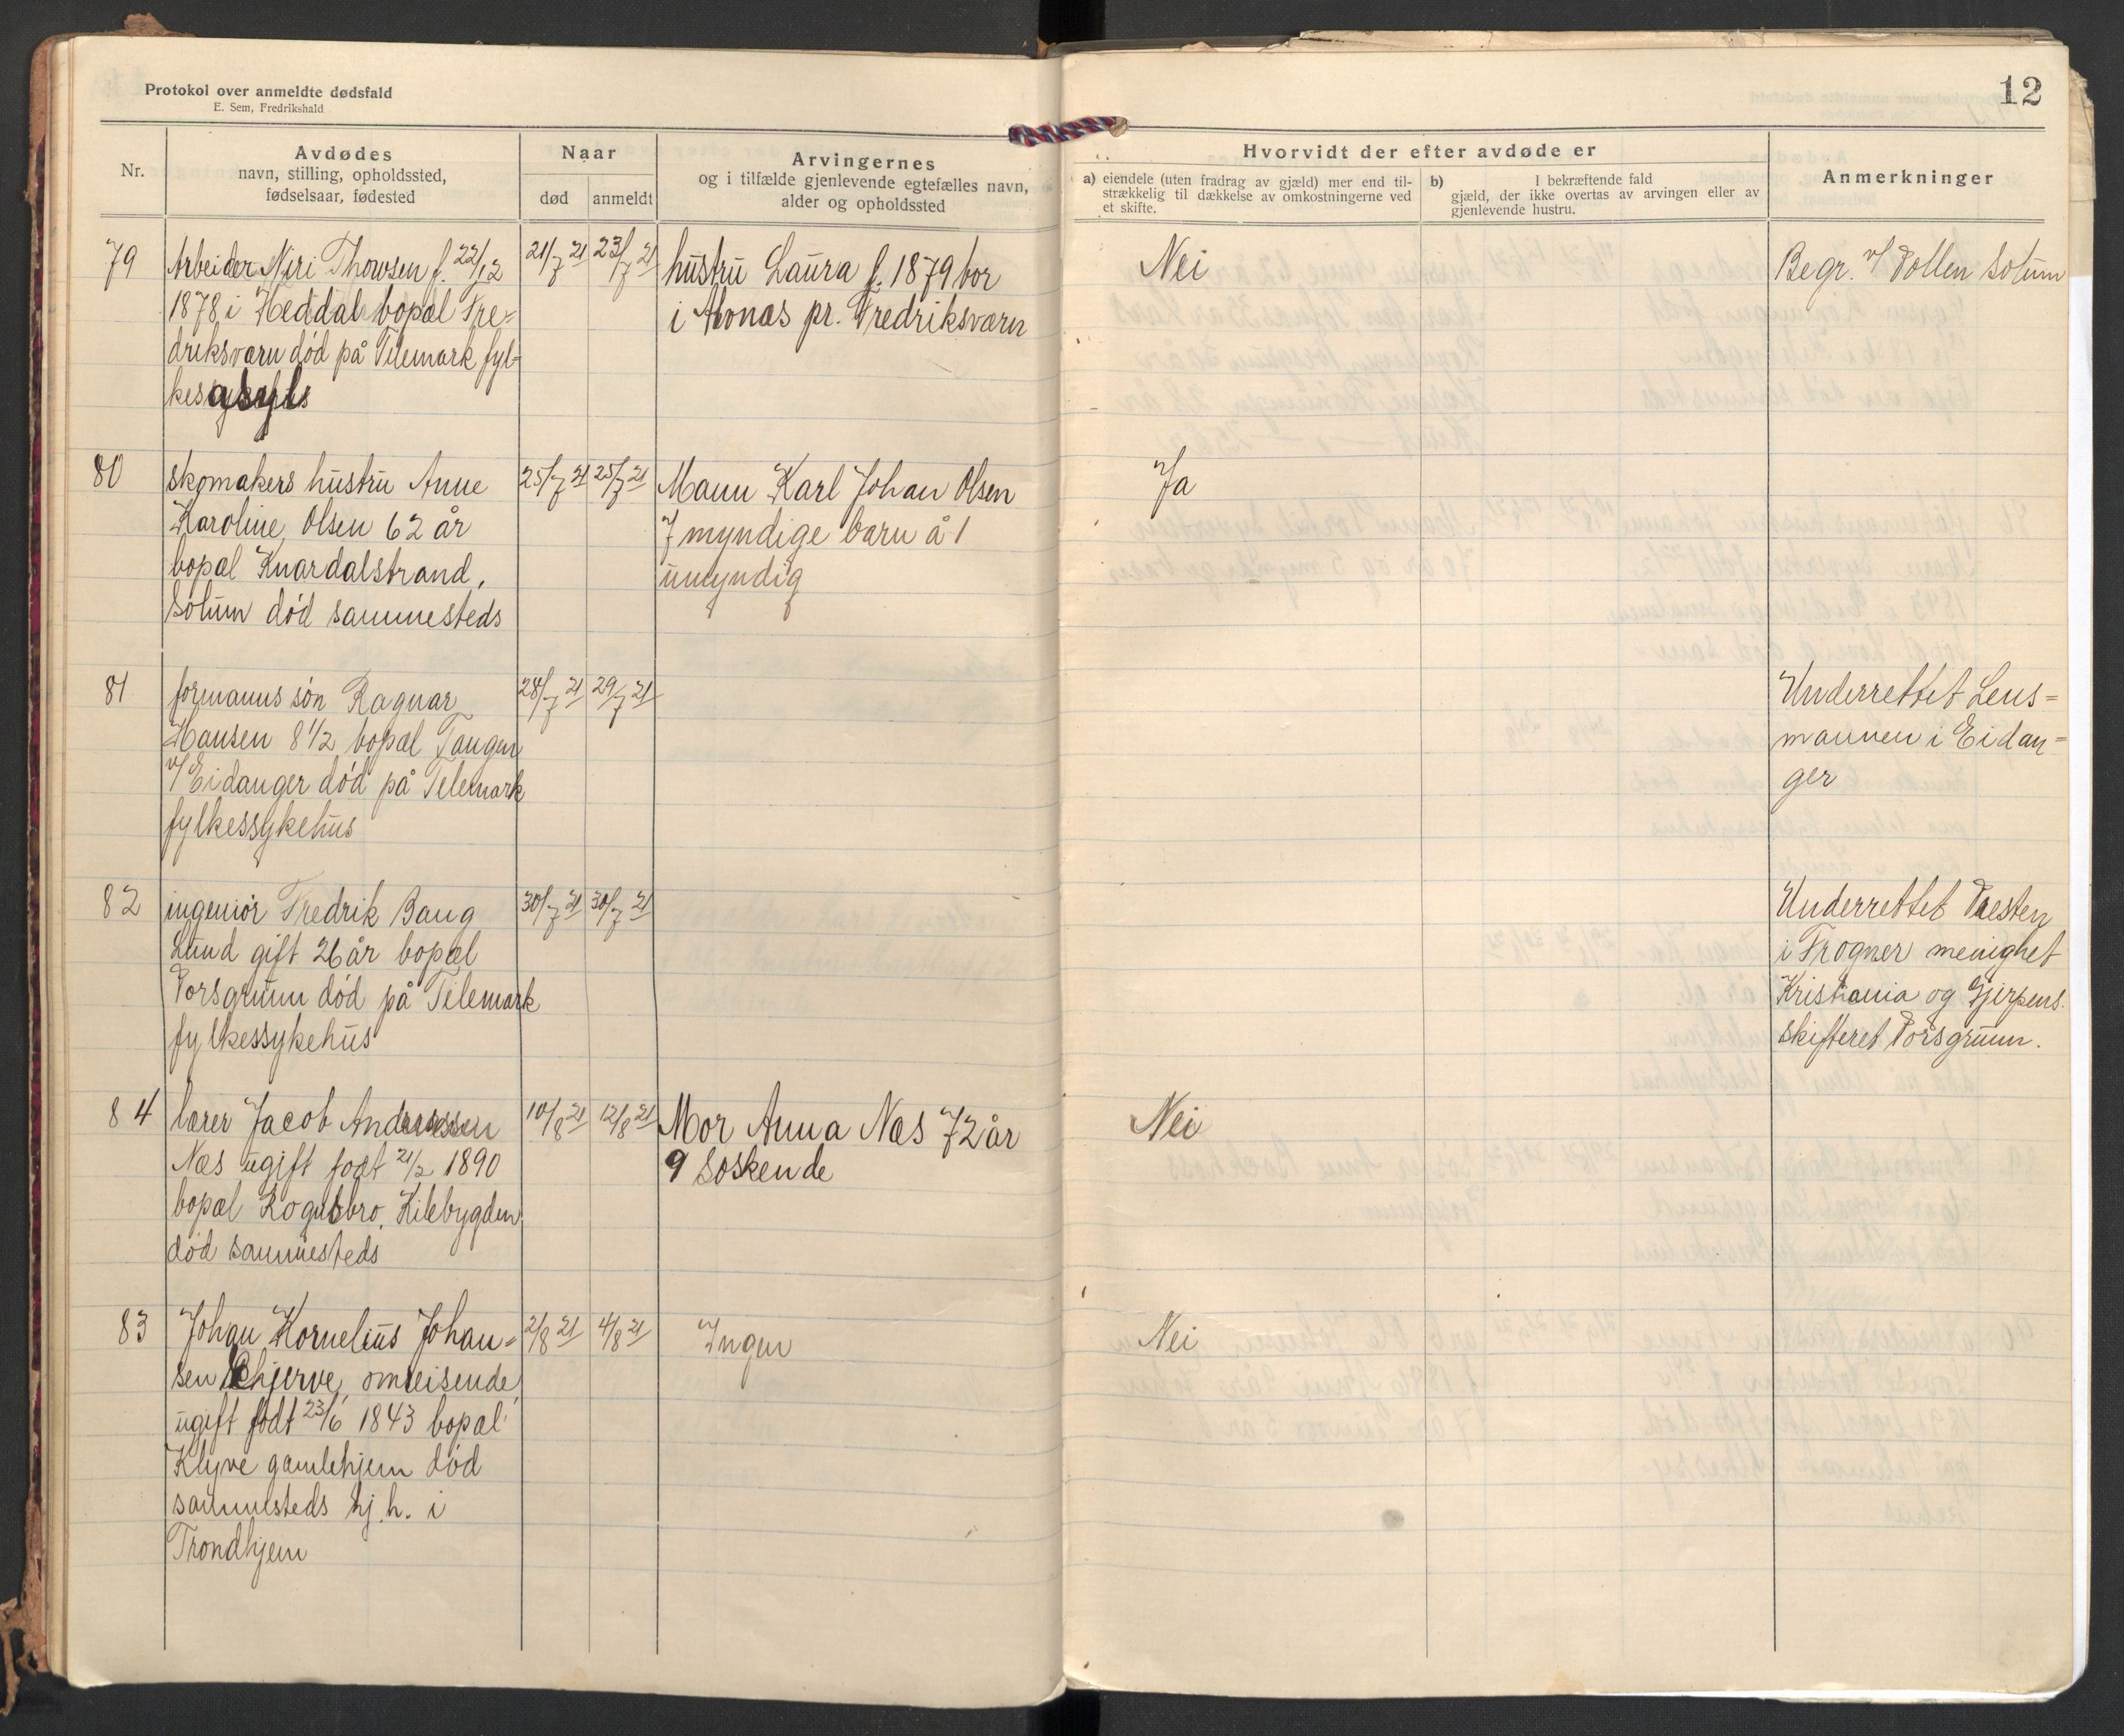 Protokol over anmeldte dødsfald
E. Sem, Fredrikshald
12
Nr.
Avdødes
navn, stilling, opholdssted,
fødselsaar, fødested
Naar
død
anmeldt
Arvingernes
og i tilfælde gjenlevende egtefælles navn,
alder og opholdssted
Hvorvidt der efter avdøde er
a) eiendele (uten fradrag av gjæld) mer end til-
strækkelig til dækkelse av omkostningerne ved
et skifte.
b) I bekræftende fald
gjæld, der ikke overtas av arvingen eller av
gjenlevende hustru.
Anmerkninger
79
Arbeider Thowsen f. 22/12
1878 i Heddal bopæl Fre=
driksværn død på Telemark fyl=
kes
21/7 21
23/7 21
hustru Laura f. 1879 bor
i pr. Fredriksværn
Nei
Begr. v/ Pollen Solum
80
skomakers hustru Anne
Karoline Olsen 62 år
bopæl Knardalstrand,
Solum død sammesteds
25/7 21
25/7 21
Mann Karl Johan Olsen
7 myndige barn å 1
umyndig
Ja
81
formanns søn Ragnar
Hansen 8 1/2 bopæl Tangen
v/ Eidanger død på Telemark
fylkessykehus
28/7 21
29/7 21
Underrettet Lens=
mannen i Eidan=
ger
82
ingeniør Fredrik Bang
Lund gift 26 år bopæl
Porsgrunn død på Telemark
fylkessykehus
30/7 21
30/7 21
Underrettet Presten
i Frogner menighet
Kristiania og Gjerpens
skifteret Porsgrunn.
84
lærer Jacob Andreassen
Næs ugift født 21/2 1890
bopæl Rognsbro, Kilebygden
død sammesteds
10/8 21
12/8 21
Mor Anna Næs 72 år
9 søskende
Nei
83
Johan Kornelius Johan=
sen omreisende,
ugift født 23/6 1843 bopæl
Klyve gamlehjem død
sammesteds hj. h. i
Trondhjem
2/8 21
4/8 21
Ingen
Nei